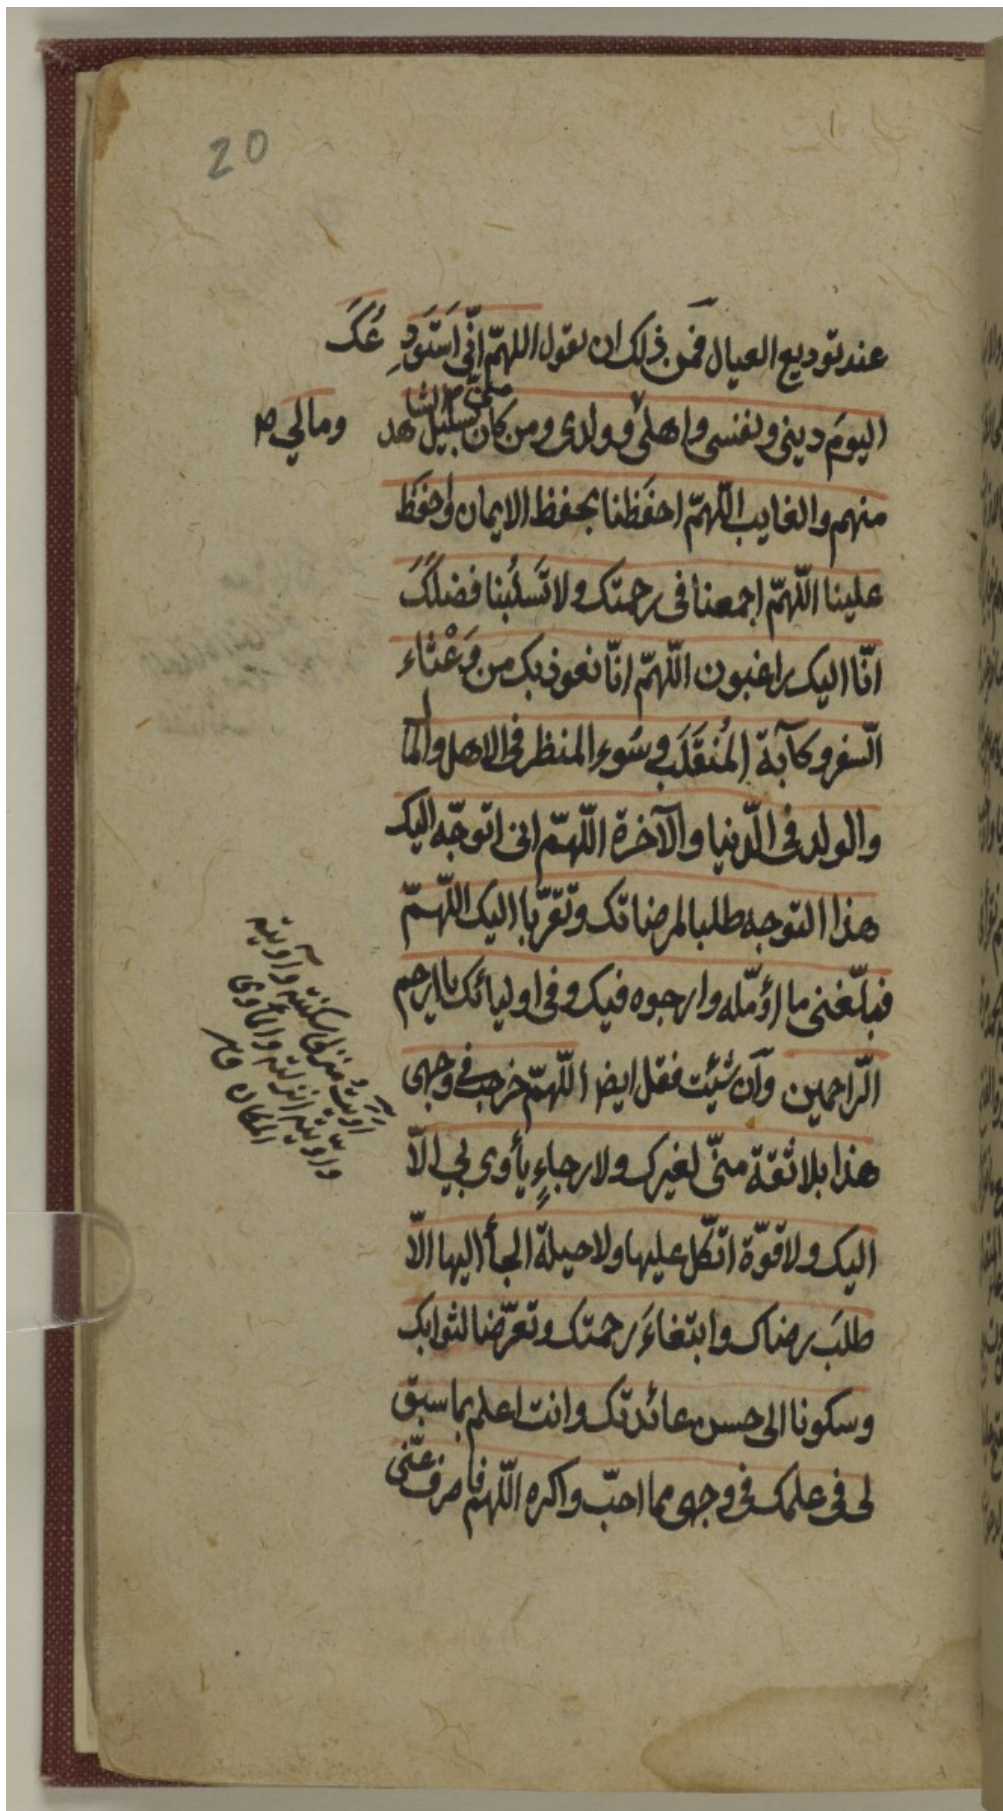 20
عند توديع العيال فمن ذلك ان يقول اللهمّ انّي اَستَودِعُكَ
اليومَ ديني ونفسى واهلى وولدى ومن كان منّى بسبيل الشاهد
ومالي صح
منهم والغايب اللّهمّ احفَظنا بحفظ الايمان واحفَظ
علينا اللّهمّ اجمعنا فى رحمتك ولا تَسلُبنا فضلكَ
انّا اليك راغبون اللّهمّ انّا نعوذ بك من وَعْثاء
السّفر وكآبة المُنقَلَب وسُوء المنظر فى الاهل والمال
والولد فى الدّنيا والآخرة اللّهمّ انى اتوجّه اليك
هذا التوجه طلبا لمرضاتك وتقرّبا اليك اللّهمّ
فبلّغنى ما اؤمّله وارجوه فيك وفى اوليائك يا ارحم
الرّاحمين وآن شئت فقل ايضا اللّهمّ خرجت فى وجهى
هذا بلا ثقة منّى لغيرك ولا رجاءٍ يأوى بي الّا
اليك ولا قوّة اتّكل عليها ولا حيلة الجأ اليها الّا
طلبَ رضاك وابتغاءَ رحمتك وتعرّضا لثوابك
وسكونا الى حسن عائدتك وانت اعلم بما سبق
لى فى علمك فى وجهى مما احبّ واكره اللّهم فاصرف عنّى
اَوَيتُ منزلى سكنته وآويته
واوّيته انزلته والمأوى
المكان